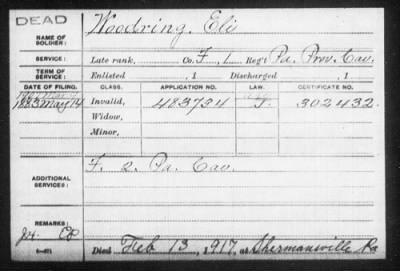 DEAD
NAME OF SOLDIER: Woodring, Eli
SERVICE: Late rank, Co. F, 1 Reg't Pa. Prov. Cav.
TERM OF SERVICE: Enlisted , 1 Discharged , 1
DATE OF FILING. CLASS. APPLICATION NO. LAW. CERTIFICATE NO.
1883 May 14 Invalid, 483734 302432
Widow,
Minor,
ADDITIONAL SERVICES: F. 2. Pa. Cav.
REMARKS:
Died Feb 13, 1917, at Shermansville Pa